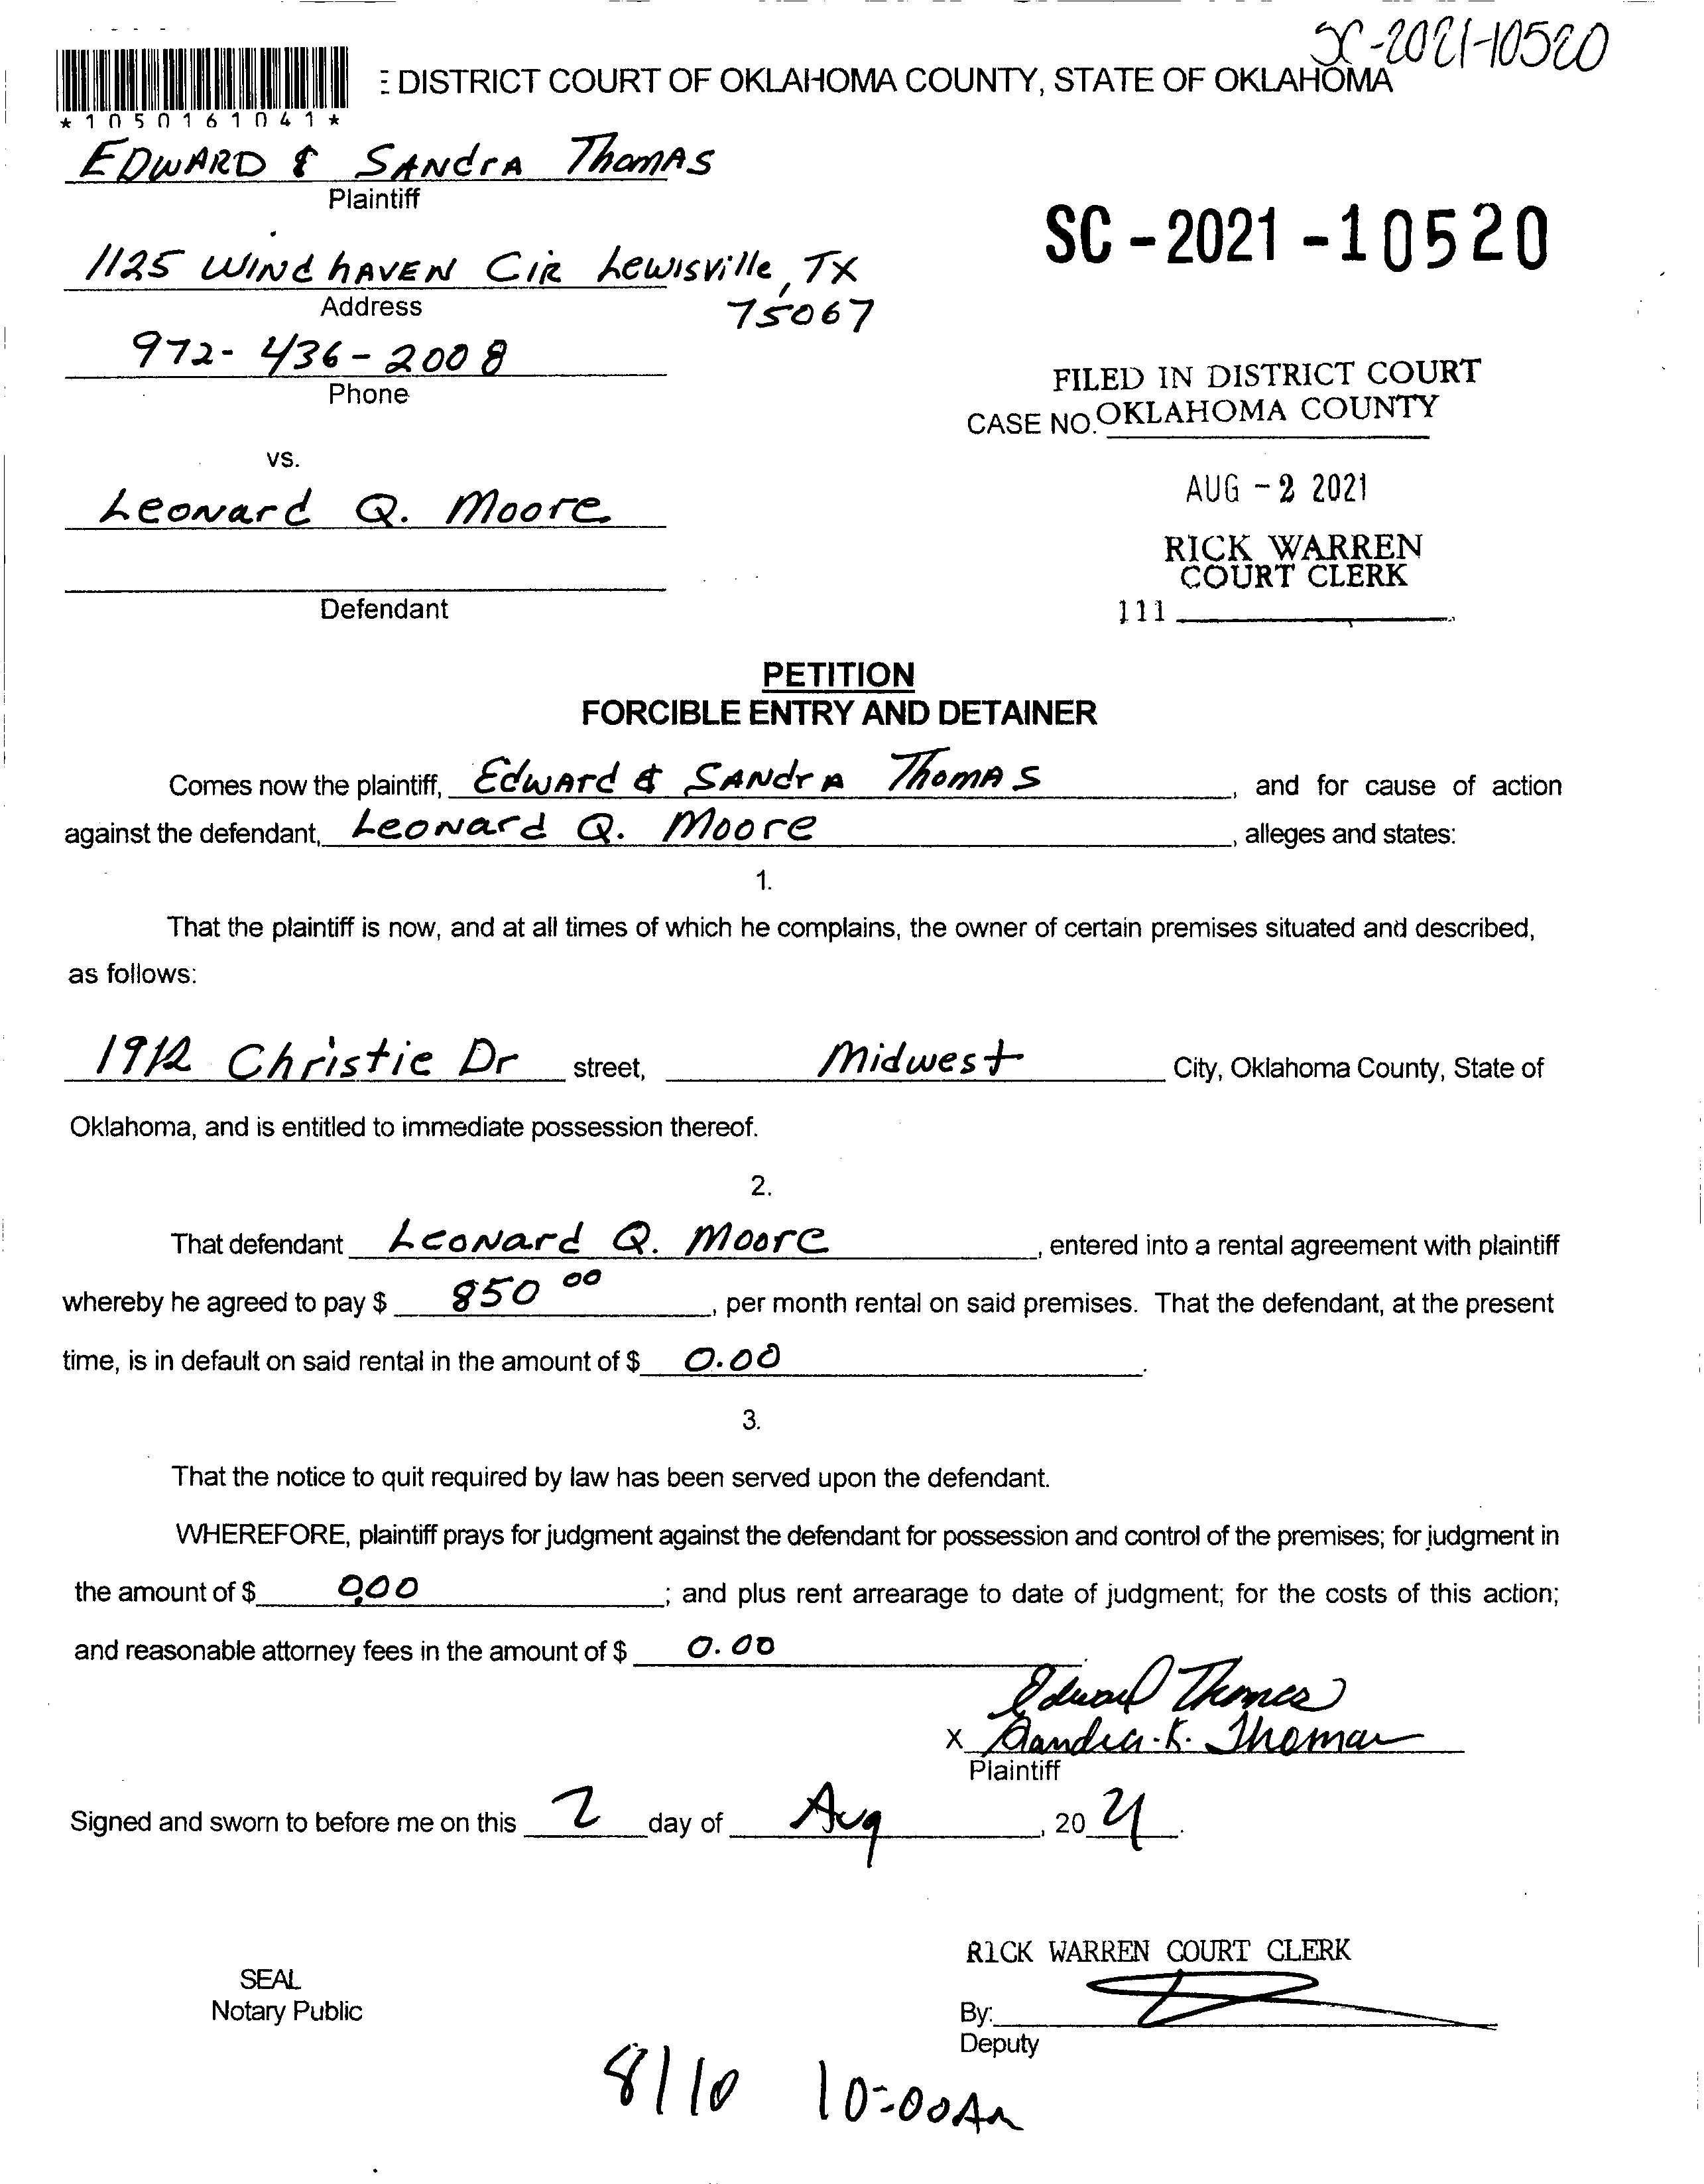 SC-2021-10520
DISTRICT COURT OF OKLAHOMA COUNTY, STATE OF OKLAHOMA
*1050161041*
EDWARD & SANdrA ThomAS
Plaintiff
SC-2021-10520
1125 WINdhAVEN CiR Lewisville, TX
Address
75067
972-436-2008
Phone
FILED IN DISTRICT COURT
CASE NO. OKLAHOMA COUNTY
vs.
AUG -2 2021
Leonard Q. Moore
RICK WARREN
COURT CLERK
Defendant
111
PETITION
FORCIBLE ENTRY AND DETAINER
Comes now the plaintiff, Edward & SANdrA ThomAS, and for cause of action
against the defendant, Leonard Q. Moore, alleges and states:
1.
That the plaintiff is now, and at all times of which he complains, the owner of certain premises situated and described,
as follows:
1912 Christie Dr street, Midwest City, Oklahoma County, State of
Oklahoma, and is entitled to immediate possession thereof.
2.
That defendant Leonard Q. Moore, entered into a rental agreement with plaintiff
whereby he agreed to pay $ 850 00, per month rental on said premises. That the defendant, at the present
time, is in default on said rental in the amount of $ 0.00.
3.
That the notice to quit required by law has been served upon the defendant.
WHEREFORE, plaintiff prays for judgment against the defendant for possession and control of the premises; for judgment in
the amount of $ 0.00; and plus rent arrearage to date of judgment; for the costs of this action;
and reasonable attorney fees in the amount of $ 0.00.
Edward Thomas
X Sandra K. Thomas
Plaintiff
Signed and sworn to before me on this 2 day of Aug, 20 21.
RICK WARREN COURT CLERK
SEAL
Notary Public
By:
Deputy
8/10 10:00Am